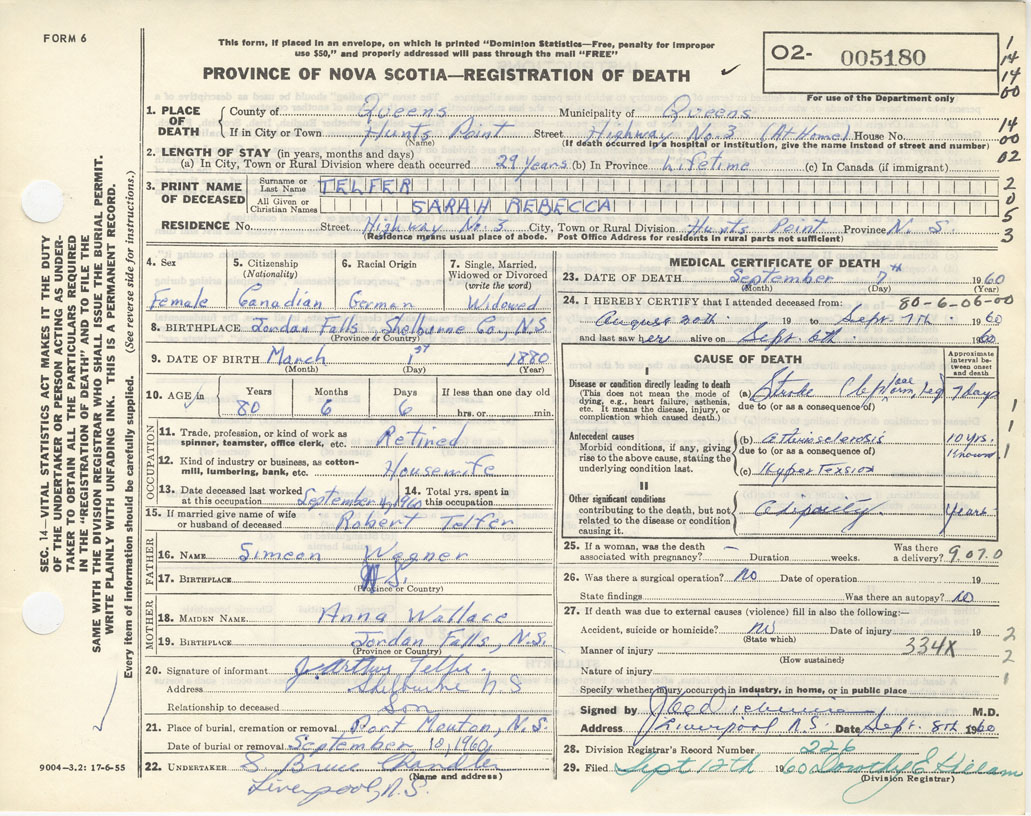 FORM 6
This form, if placed in an envelope, on which is printed "Dominion Statistics—Free, penalty for improper
use $50," and properly addressed will pass through the mail "FREE"
PROVINCE OF NOVA SCOTIA—REGISTRATION OF DEATH
02- 005180
For use of the Department only
1
14
14
00
14
00
02
2
0
5
3
1. PLACE OF DEATH
County of Queens Municipality of Queens
If in City or Town Hunts Point Street Highway No. 3 (At Home) House No.
(Name) (If death occurred in a hospital or institution, give the name instead of street and number)
2. LENGTH OF STAY (in years, months and days)
(a) In City, Town or Rural Division where death occurred 29 years (b) In Province Lifetime (c) In Canada (if immigrant)
3. PRINT NAME OF DECEASED
Surname or Last Name TELFER
All Given or Christian Names SARAH REBECCA
RESIDENCE No. Street Highway No. 3 City, Town or Rural Division Hunts Point Province N. S.
(Residence means usual place of abode. Post Office Address for residents in rural parts not sufficient)
4. Sex 5. Citizenship (Nationality) 6. Racial Origin 7. Single, Married, Widowed or Divorced (write the word)
Female Canadian German Widowed
8. BIRTHPLACE Jordan Falls Shelburne Co., N.S.
(Province or Country)
9. DATE OF BIRTH March 1st 1880
(Month) (Day) (Year)
10. AGE in Years Months Days If less than one day old
80 6 6 hrs. or min.
OCCUPATION
11. Trade, profession, or kind of work as spinner, teamster, office clerk, etc. Retired
12. Kind of industry or business, as cotton-mill, lumbering, bank, etc. Housewife
13. Date deceased last worked at this occupation September 4, 1960 14. Total yrs. spent in this occupation
15. If married give name of wife or husband of deceased Robert Telfer
FATHER
16. NAME Simeon Wagner
17. BIRTHPLACE N.S.
(Province or Country)
MOTHER
18. MAIDEN NAME Anna Wallace
19. BIRTHPLACE Jordan Falls, N.S.
(Province or Country)
20. Signature of informant J. Arthur Telfer
Address Shelburne N S
Relationship to deceased Son
21. Place of burial, cremation or removal Port Mouton, N.S.
Date of burial or removal September 10, 1960
22. UNDERTAKER S Bruce Chandler
(Name and address)
Liverpool, N.S.
MEDICAL CERTIFICATE OF DEATH
23. DATE OF DEATH September 7th 1960
(Month) (Day) (Year)
24. I HEREBY CERTIFY that I attended deceased from: 80-6-06-00
August 20th 19 to Sept. 7th 1960
and last saw her alive on Sept. 6th 1960
CAUSE OF DEATH
Approximate interval between onset and death
I
Disease or condition directly leading to death
(This does not mean the mode of dying, e.g., heart failure, asthenia, etc. It means the disease, injury, or complication which caused death.)
(a) Stroke 7 days
due to (or as a consequence of)
Antecedent causes
Morbid conditions, if any, giving rise to the above cause, stating the underlying condition last.
(b) atherosclerosis 10 yrs.
due to (or as a consequence of) Known
(c) Hypertension
II
Other significant conditions
contributing to the death, but not related to the disease or condition causing it.
years
1
1
1
1
25. If a woman, was the death associated with pregnancy? — Duration weeks. Was there a delivery? 9.07.0
26. Was there a surgical operation? No Date of operation 19
State findings Was there an autopsy? No
27. If death was due to external causes (violence) fill in also the following:—
Accident, suicide or homicide? No Date of injury 19
(State which)
Manner of injury 334X
(How sustained)
Nature of injury
Specify whether injury occurred in industry, in home, or in public place
2
2
1
Signed by M.D.
Address Liverpool N.S. Date Sept. 8th 1960
28. Division Registrar's Record Number 226
29. Filed Sept 12th 1960 Dorothy E Hillam
(Division Registrar)
SEC. 14—VITAL STATISTICS ACT MAKES IT THE DUTY
OF THE UNDERTAKER OR PERSON ACTING AS UNDER-
TAKER TO OBTAIN ALL THE PARTICULARS REQUIRED
IN THE "REGISTRATION OF DEATH" AND TO FILE THE
SAME WITH THE DIVISION REGISTRAR WHO SHALL ISSUE THE BURIAL PERMIT.
WRITE PLAINLY WITH UNFADING INK. THIS IS A PERMANENT RECORD.
Every item of information should be carefully supplied. (See reverse side for instructions.)
9004—3.2: 17-6-55